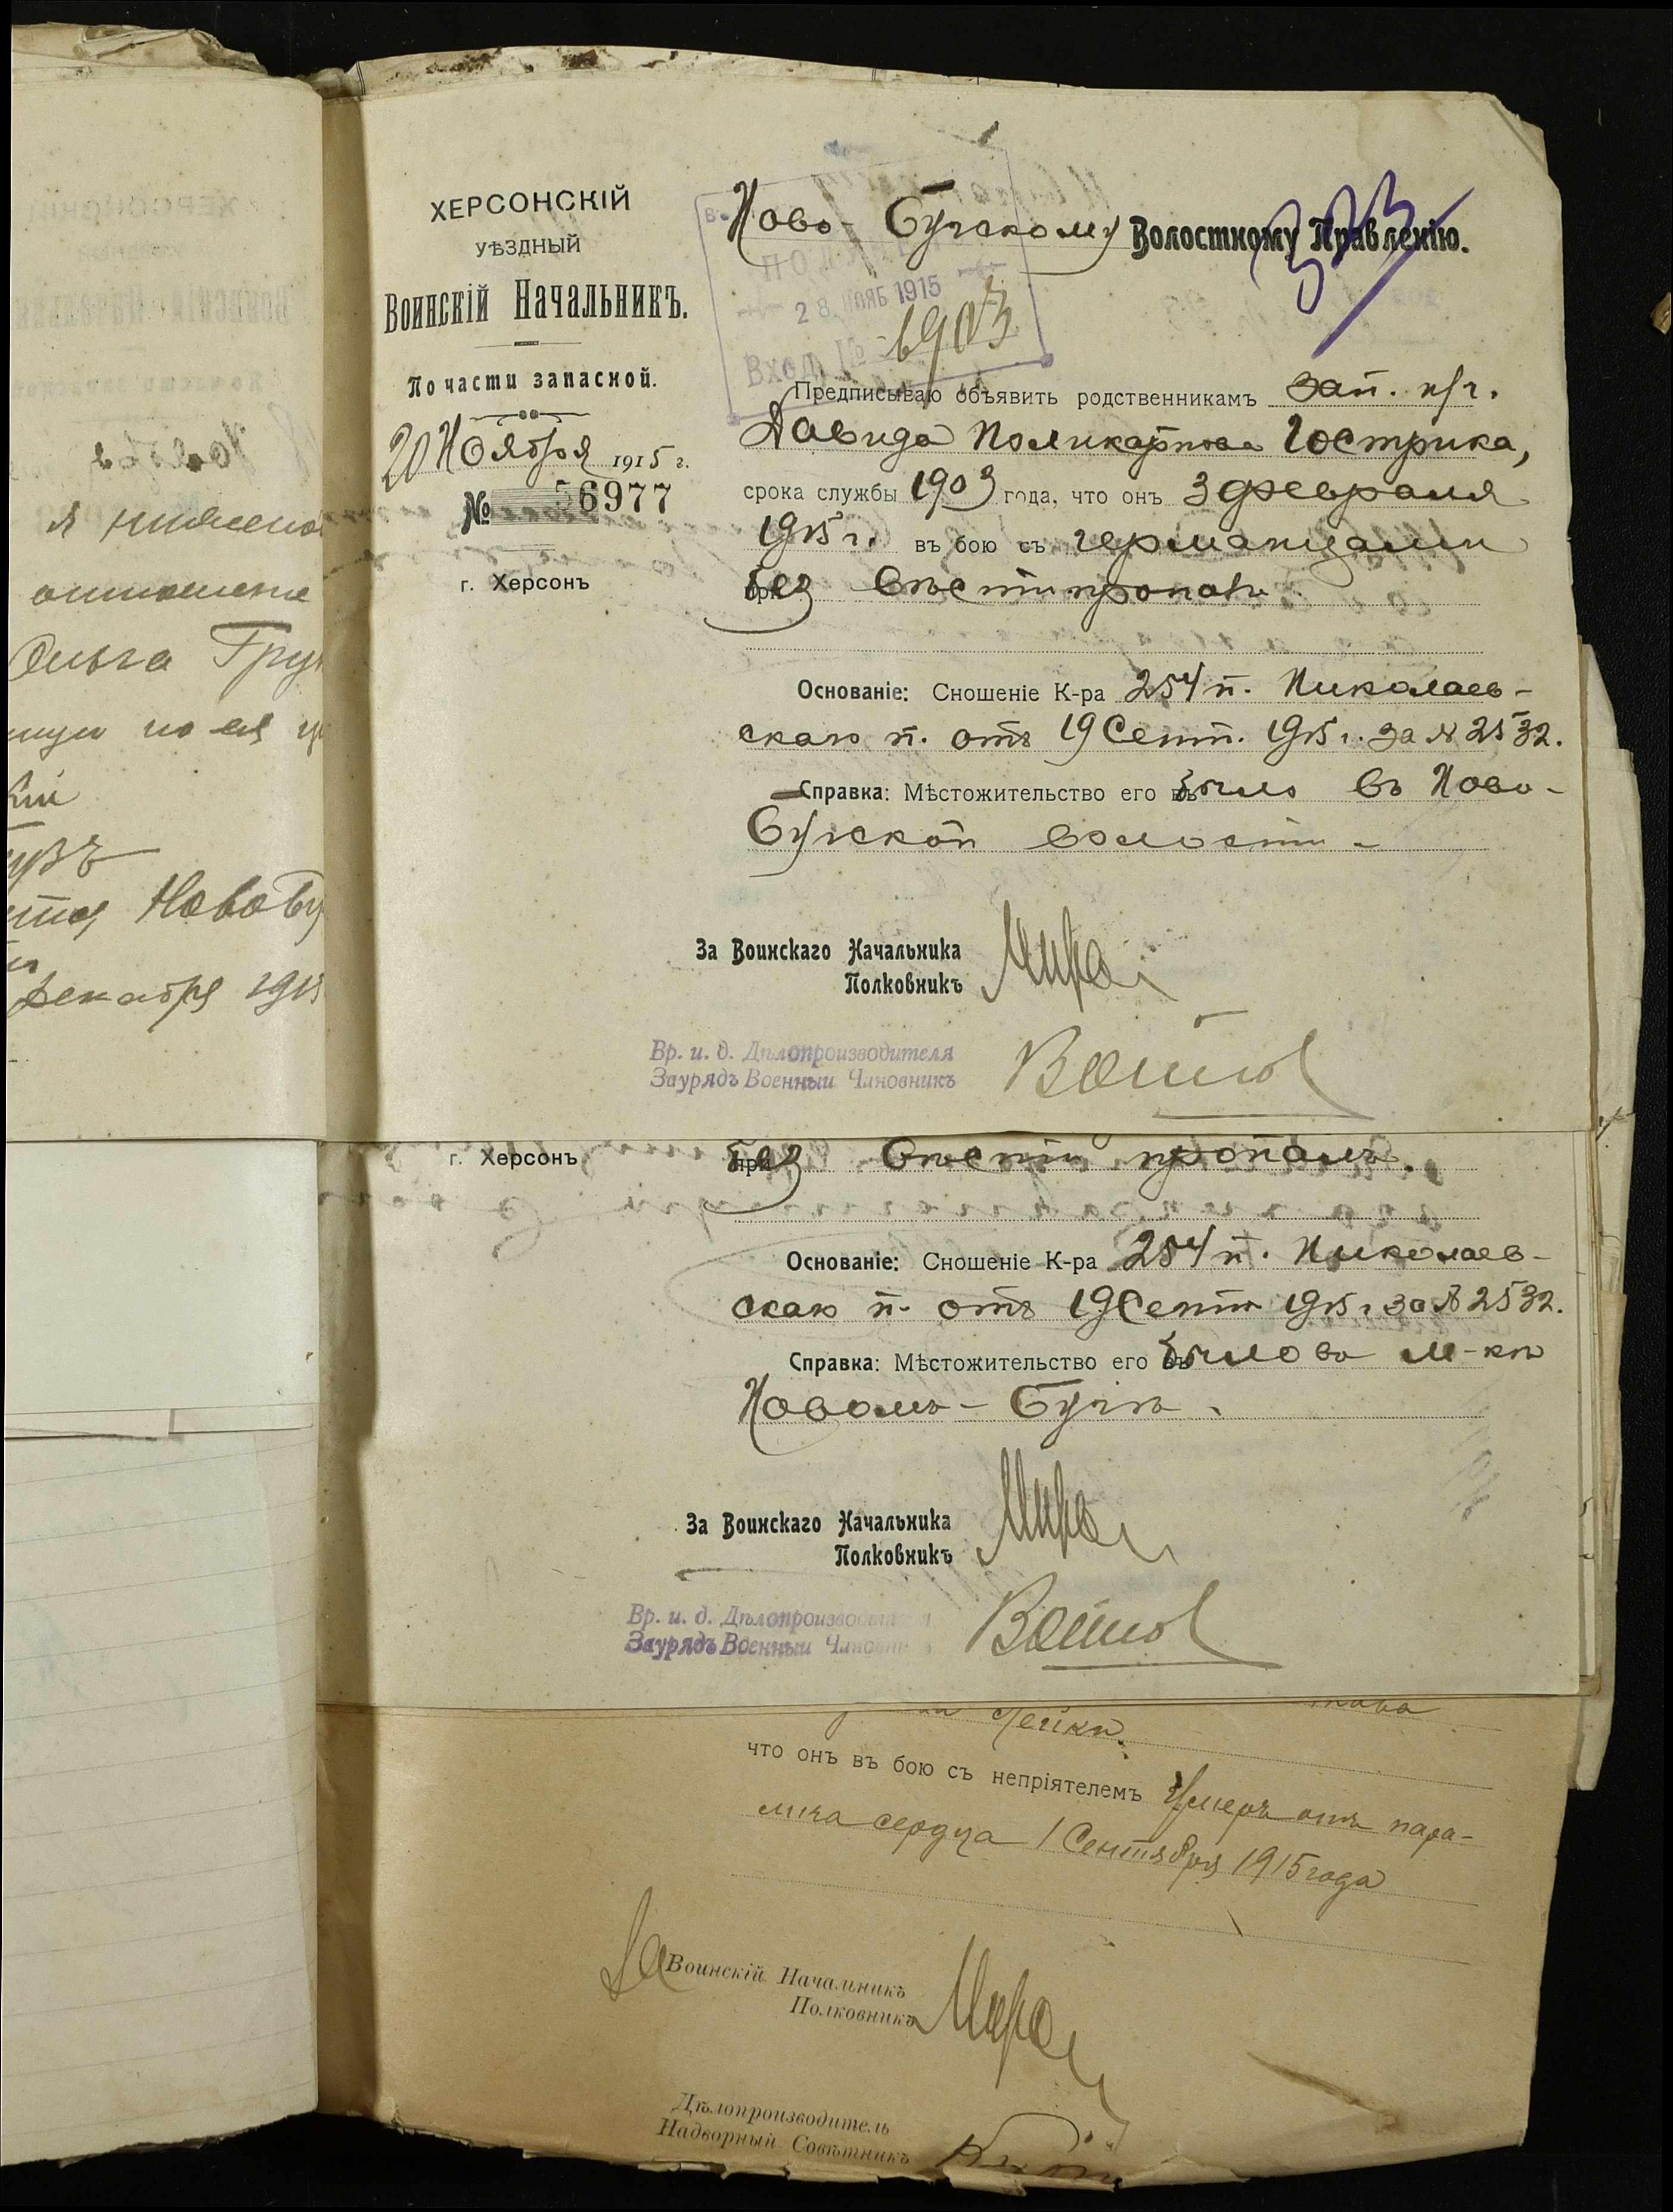 ХЕРСОНСКІЙ
УѢЗДНЫЙ
ВОИНСКІЙ НАЧАЛЬНИКЪ.
По части запасной.
20 Ноября 1915 г.
№ 56977
г. Херсонъ
Ново-Бугскому Волостному Правленію.
28 НОЯБ 1915
Вход. № 6903
Предписываю объявить родственникамъ зап. н/ч.
Давида Поликарпова Гострика,
срока службы 1903 года, что онъ 3 февраля
1915 г. въ бою съ германцами
без вѣсти пропалъ
Основаніе: Сношеніе К-ра 254 п. Николаев-
скаго п. отъ 19 Сент. 1915 г. за № 2532.
Справка: Мѣстожительство его было въ Ново-
Бугской волости.
За Воинскаго Начальника
Полковникъ
Вр. и. д. Дѣлопроизводителя
Заурядъ Военный Чиновникъ
я нижепо
отношение
Ольга
Новобу
декабря 191
г. Херсонъ
без вѣсти пропалъ.
Основаніе: Сношеніе К-ра 254 п. Николаев-
скаго п. отъ 19 Сент 1915 г за № 2532.
Справка: Мѣстожительство его было въ м-кѣ
Новомъ-Бугѣ.
За Воинскаго Начальника
Полковникъ
Вр. и. д. Дѣлопроизводит
Заурядъ Военный Чиновн
что онъ въ бою съ непріятелемъ Умеръ отъ пара-
лича сердца 1 Сентября 1915 года
За Воинскій Начальникъ
Полковникъ
Дѣлопроизводитель
Надворный Совѣтникъ